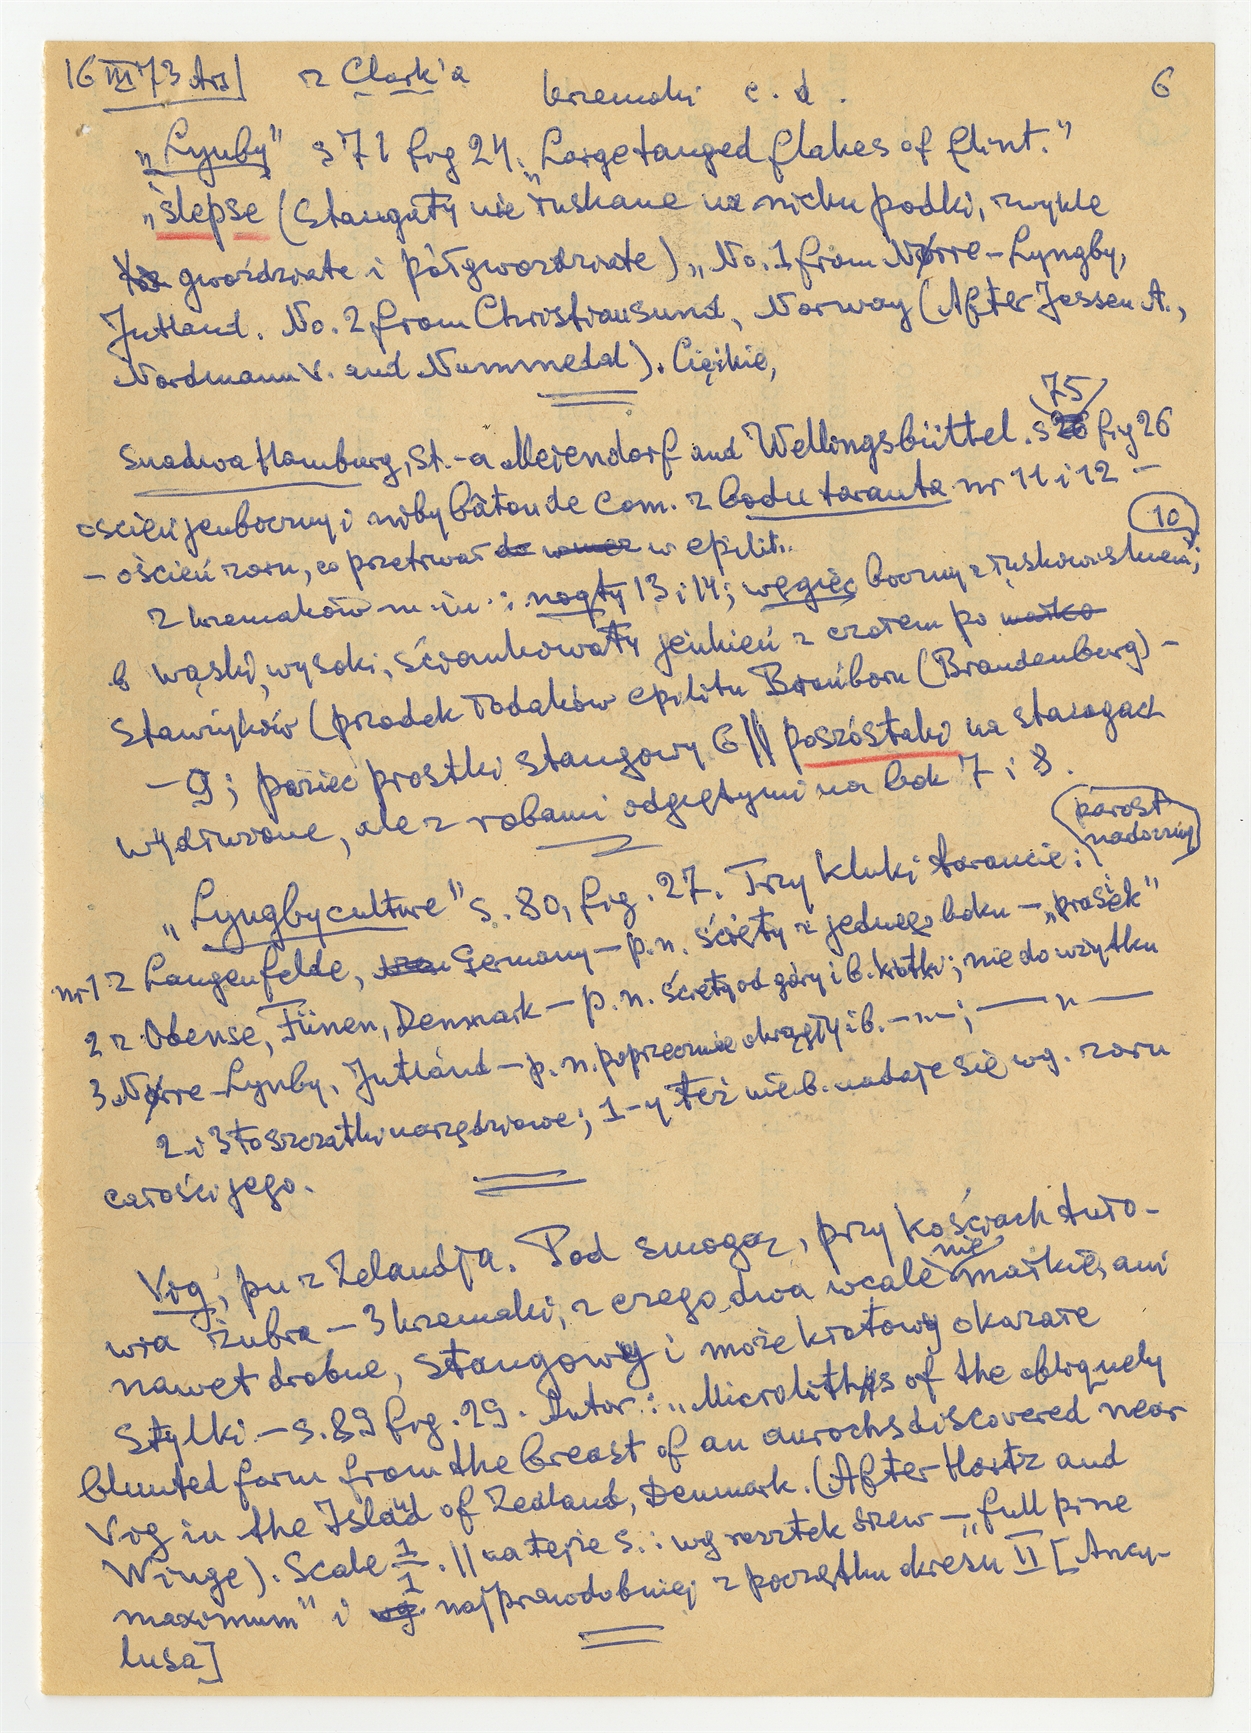 16 III 73 z Clark'a krzemaki c. d. 6
"Lynby" s 71 fig 24. "Large tanged flakes of flint."
"ślepse (Stanguty nie łuskane na nicku podki, zwykle
gwoździate i półgwoździate) „No. 1 from Nørre-Lyngby,
Jutland. No. 2 from Christiansund, Norway (After Jessen A.,
Nordmann V. and Nummedal). Ciężkie,
75
Hamburg, St.-a Meiendorf and Wellingsbüttel. s fig 26
oścień jenboczny i niby bâton de com. z bodu taranta nr 11 i 12 —
— oścień zaru, co przetrwał w epilit.. 10
z krzemaków m. in.: nogty 13 i 14; węgiec boczny z łuskowiskiem;
b wąski, wysoki, ściankowaty jeńkień z czołem po
Stawiyków (przodek łodaków epilitu Branibora (Brandenburg) —
— 9; paziec prostki stangowy 6 || poszóstaki na stacogach
wydłużone, ale z robami odgiętymi na bok 7 i 8.
parost
nadoczny
„Lyngby culture" s. 80, fig. 27. Trzy kluki tarancie:
nr 1 z Langenfelde, Germany — p. n. ścięty z jednego boku — „prasiek"
2 z Odense, Fünen, Denmark — p. n. ścięty od góry i b. krótki; nie do użytku
3 Nørre-Lynby, Jutland — p. n. poprzecznie okrągły i b. —"—; —— " ——
2 i 3 to szczątki narzędziowe; 1-y też nie b. nadaje się wg. zaru
całości jego.
Vig, pn z Zelandja. Pod smogaz, przy kościach turo-
nie
wia żubra — 3 krzemaki, z czego dwa wcale maikie, ani
nawet drobne, stangowy i może kratowy okazałe
Stylki — s. 89 fig. 29. Autor: „Microliths of the obliquely
blunted form from the breast of an aurochs discovered near
Vig in the Island of Zealand, Denmark. (After Hartz and
Winge). Scale 1/1. || na tejże s.: wg resztek drzew — „full pine
maximum" i najprawdobniej z początku okresu II [Ancy-
lusa]